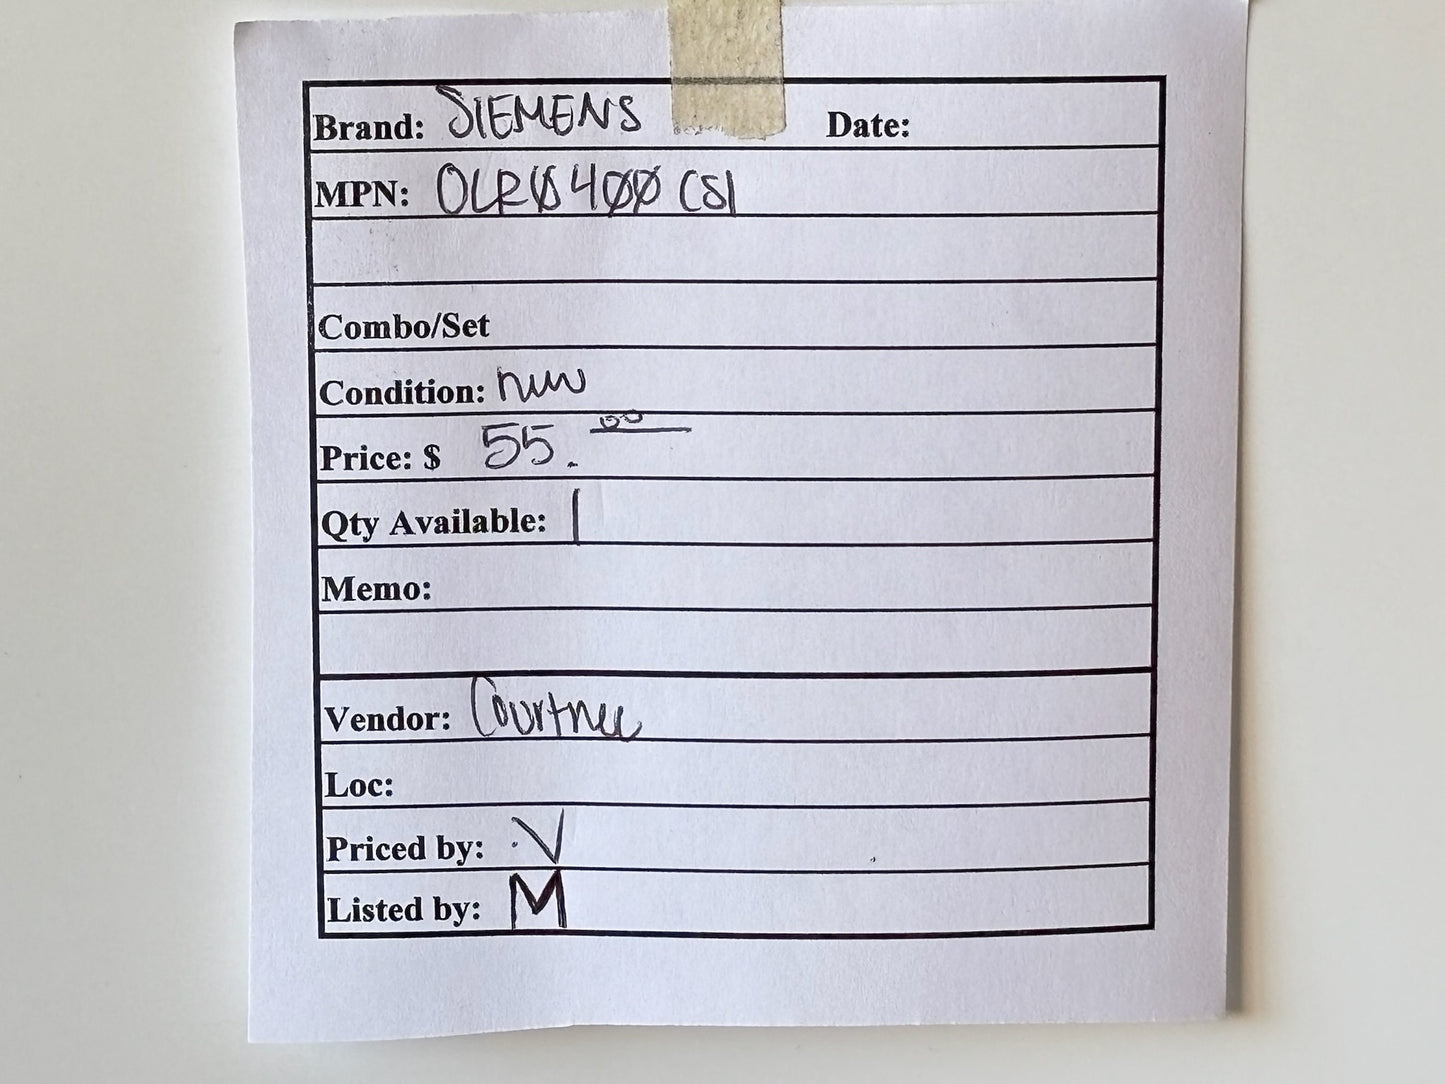 Brand: SIEMENS Date:
MPN: OLRØ4ØØ CSI
Combo/Set
Condition: new
Price: $ 55.00
Qty Available: 1
Memo:
Vendor: Courtnee
Loc:
Priced by: V
Listed by: M